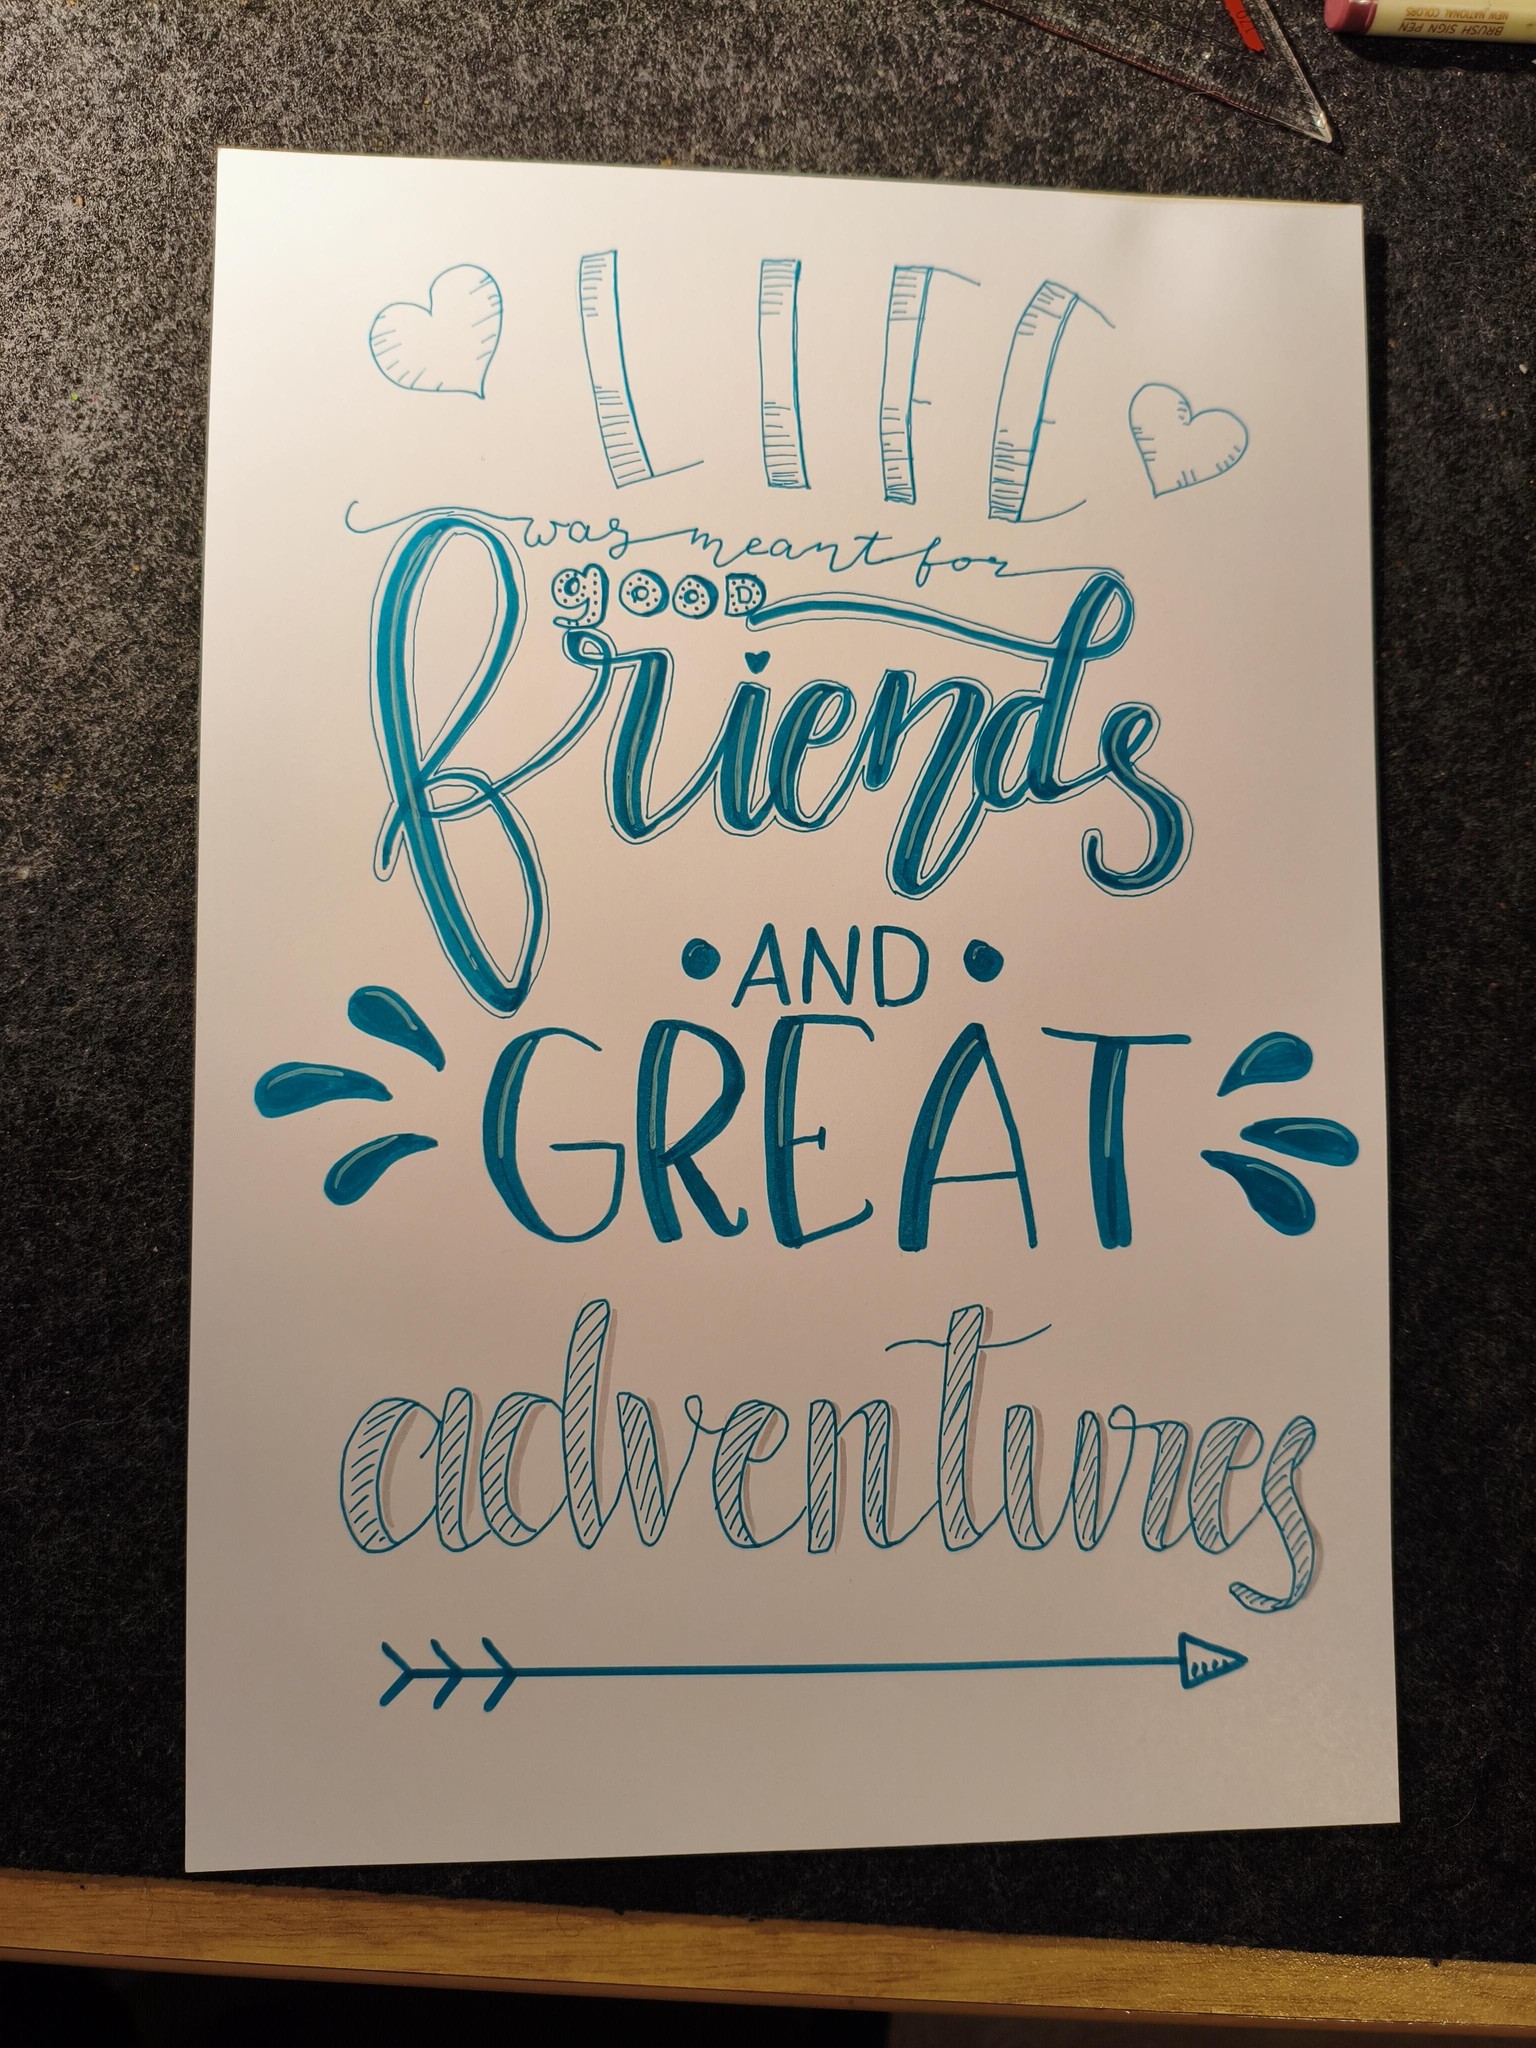 BRUSH SIGN PEN
NEW NATIONAL COLORS
170
LIFE
was meant for
gOOD
friends
AND
GREAT
adventures